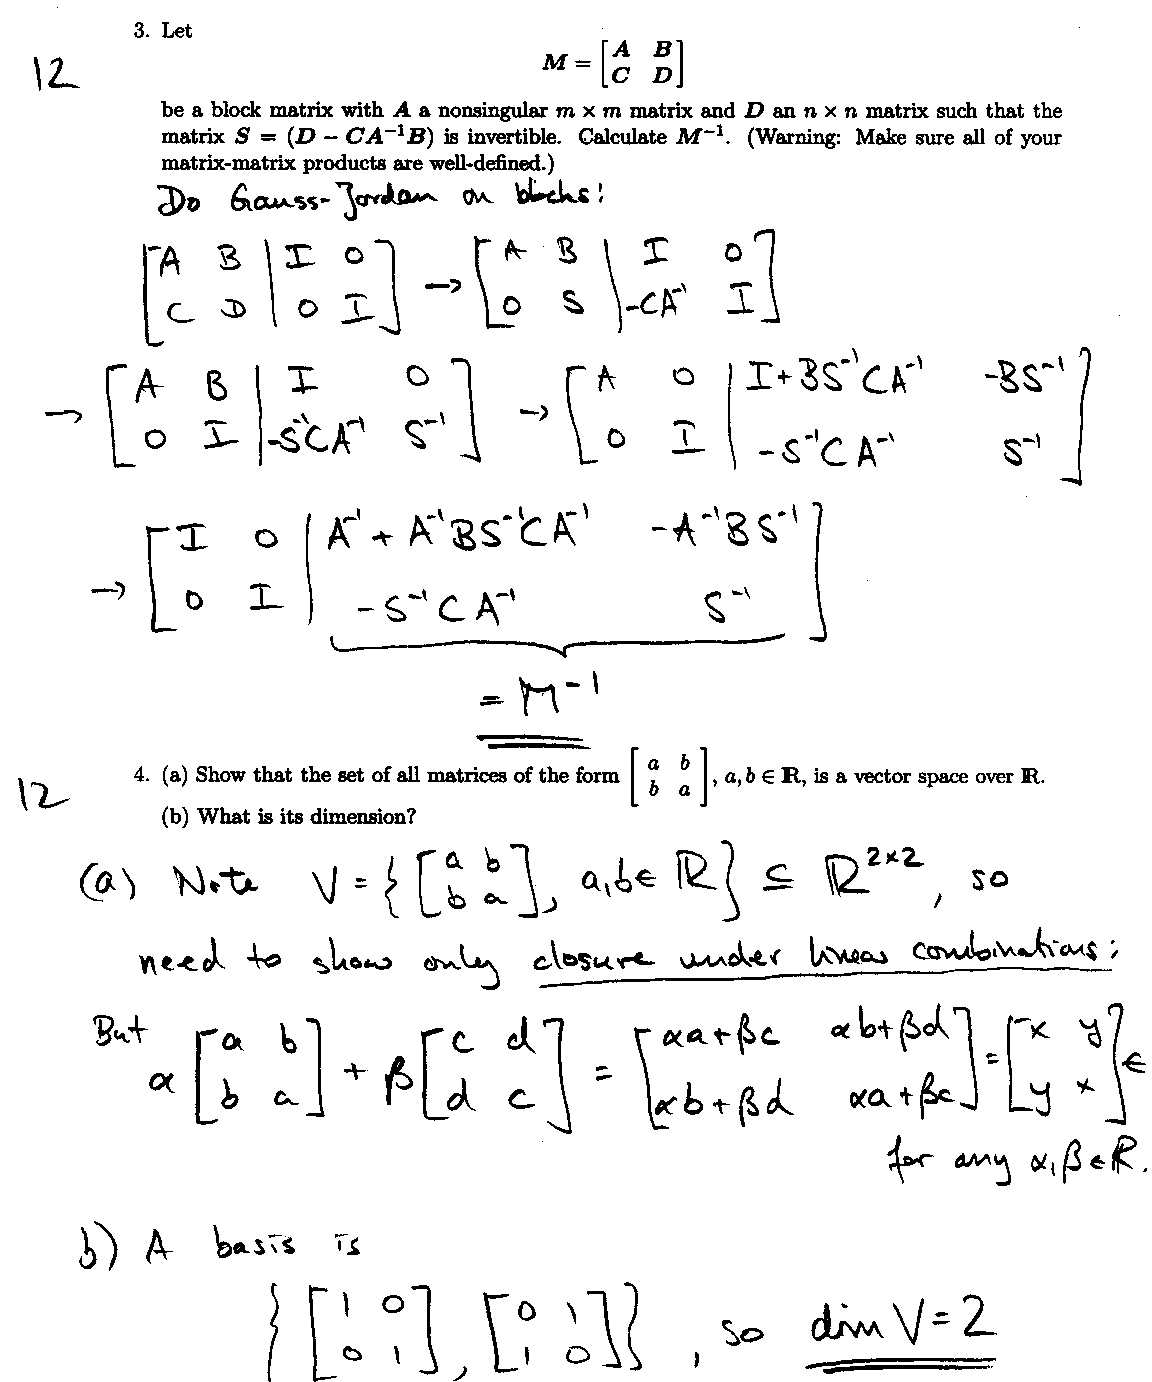 3. Let
12
M = [A B; C D]
be a block matrix with A a nonsingular m × m matrix and D an n × n matrix such that the
matrix S = (D − CA⁻¹B) is invertible. Calculate M⁻¹. (Warning: Make sure all of your
matrix-matrix products are well-defined.)
Do Gauss-Jordan on blocks:
[A B | I 0; C D | 0 I] → [A B | I 0; 0 S | -CA⁻¹ I]
→ [A B | I 0; 0 I | -S⁻¹CA⁻¹ S⁻¹] → [A 0 | I+BS⁻¹CA⁻¹ -BS⁻¹; 0 I | -S⁻¹CA⁻¹ S⁻¹]
→ [I 0 | A⁻¹+A⁻¹BS⁻¹CA⁻¹ -A⁻¹BS⁻¹; 0 I | -S⁻¹CA⁻¹ S⁻¹]
= M⁻¹
12
4. (a) Show that the set of all matrices of the form [a b; b a], a, b ∈ R, is a vector space over R.
(b) What is its dimension?
(a) Note V = {[a b; b a], a,b ∈ R} ⊆ R^{2×2}, so
need to show only closure under linear combinations:
But α[a b; b a] + β[c d; d c] = [αa+βc αb+βd; αb+βd αa+βc] = [x y; y x] ∈
for any α, β ∈ R.
b) A basis is
{[1 0; 0 1], [0 1; 1 0]}, so dim V = 2